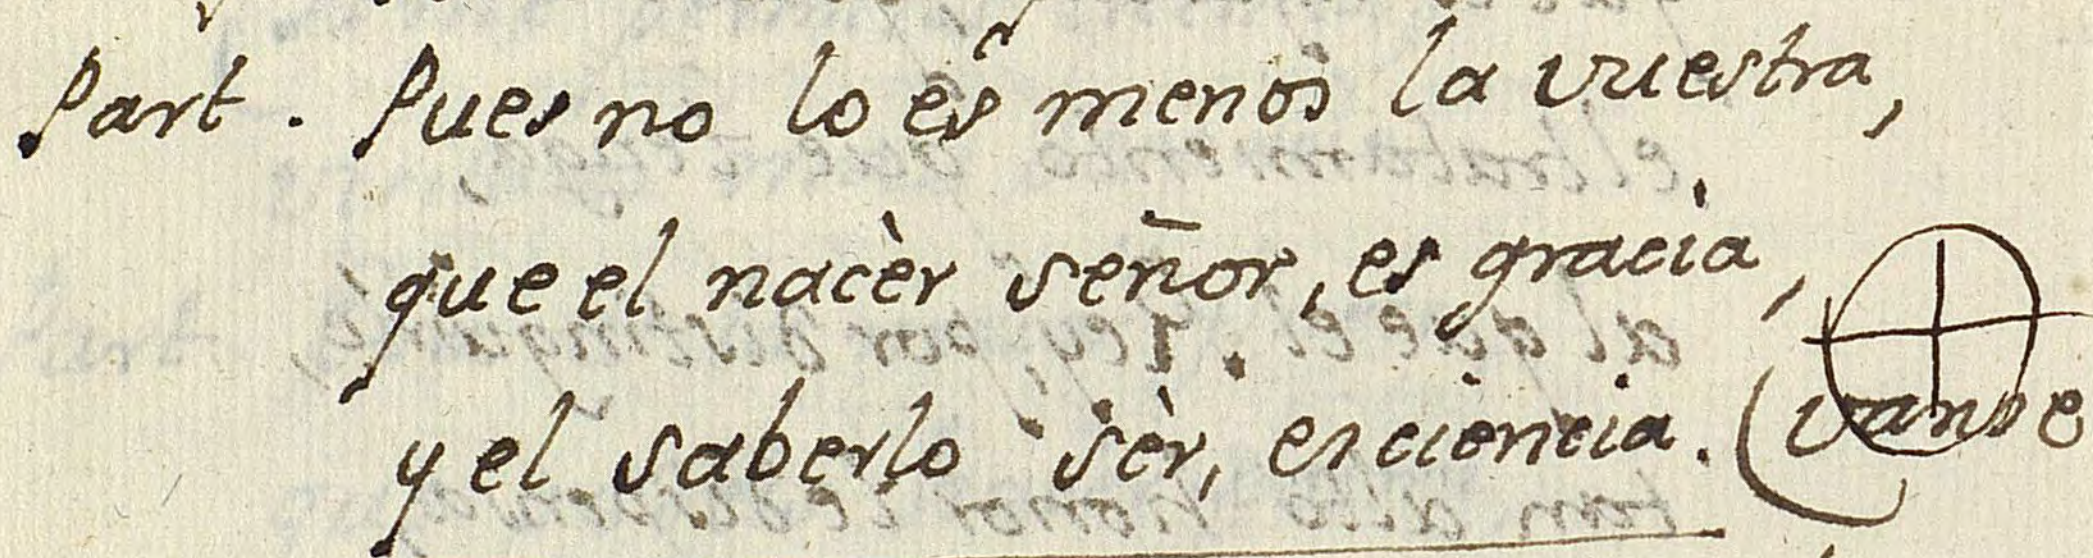 Part. Pues no lo es menos la vuestra,
que el nacèr señor, es gracia,
y el saberlo sèr, es ciencia. (vanse